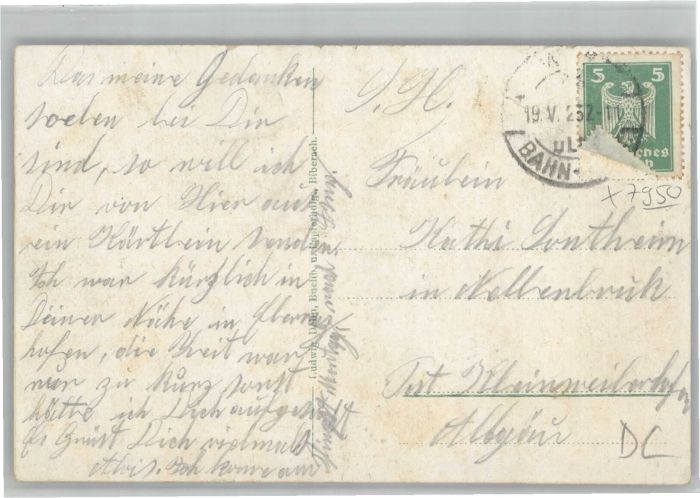 Das meine Gedanken
soeben bei Dir
sind, so will ich
Dir von Hier aus
ein Kärtlein senden
Ich war kürzlich in
Deiner Nähe in
hofen, die Zeit war
nur zu kurz sonst
hätte ich Dich aufgesucht
Es Grüst Dich vielmals
Alois. Ich komme am
Ludwig Dohn, Buchh. u. Biberach.
S. H.
Fräulein
Käthi Sontheim
in Nellenbruk
Post Kleinweilerhofen
Allgäu
19. V. 25
BAHN
5 5
Deutsches
+7950
DC